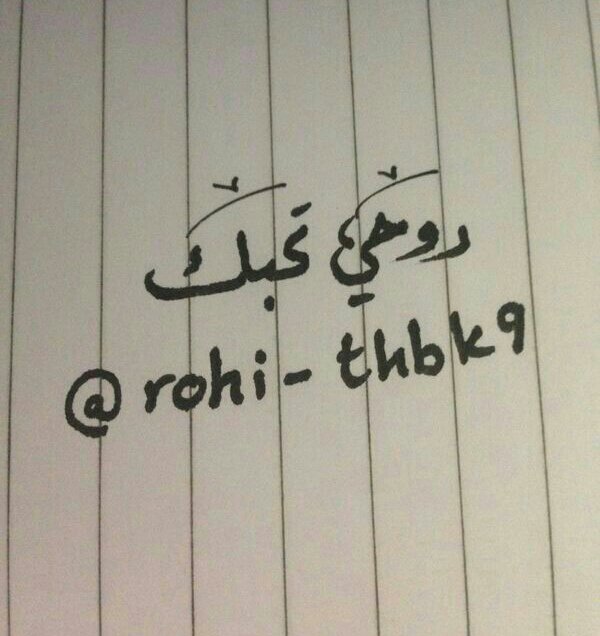 روحي تحبك
@rohi-thbk9